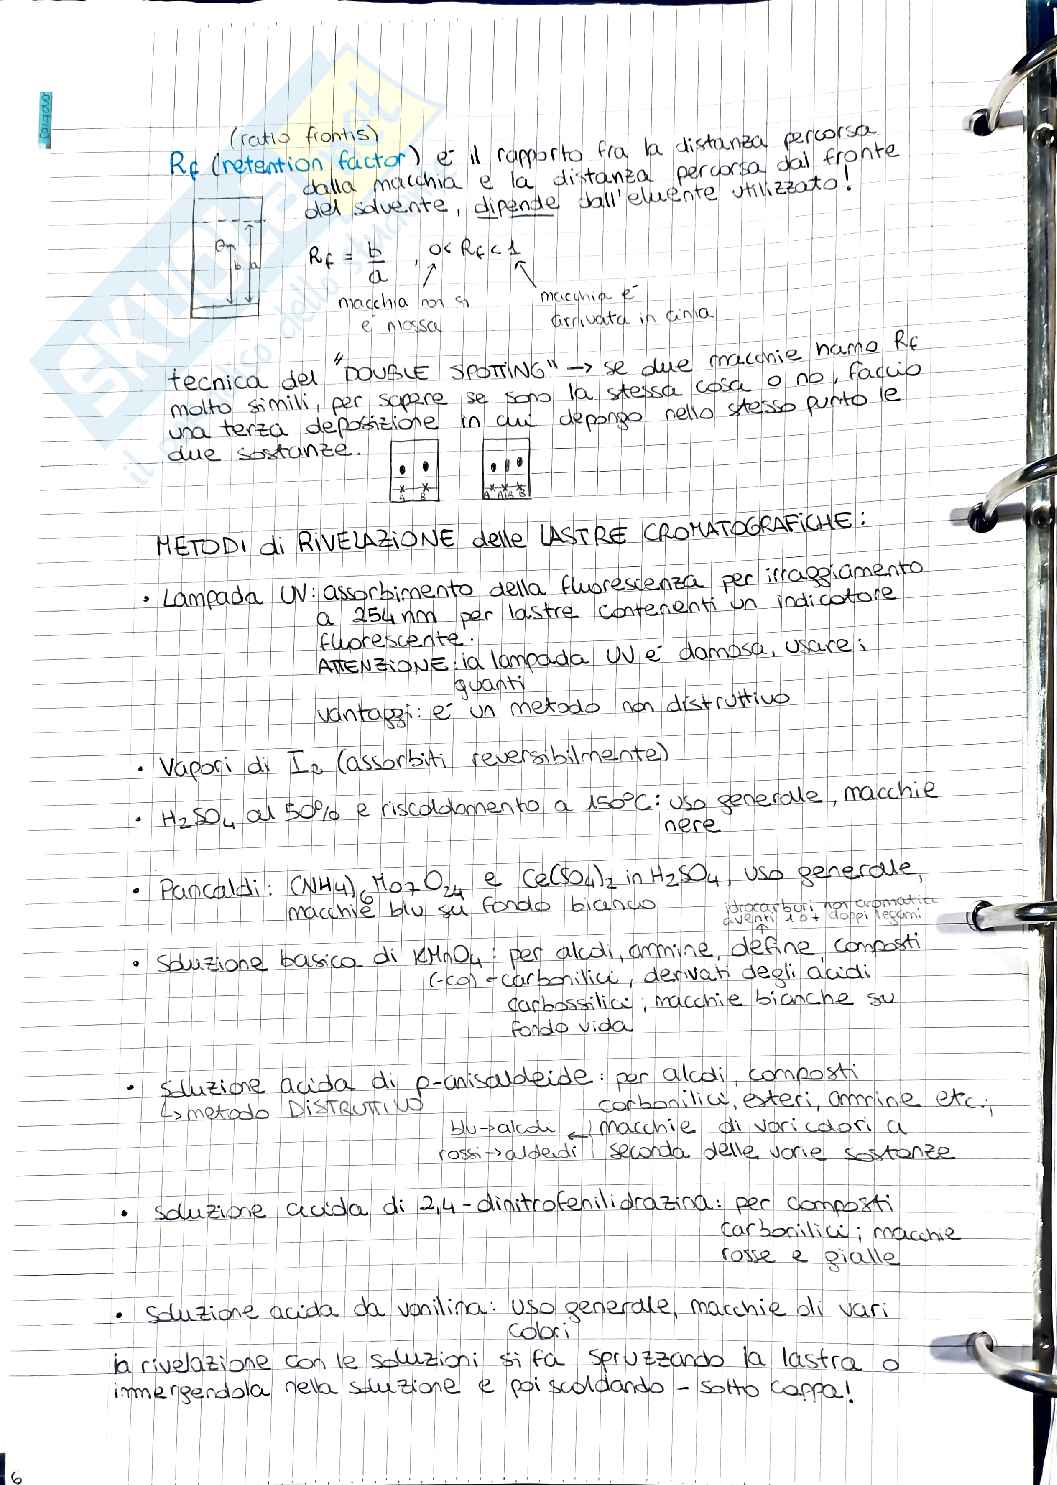 (ratio frontis)
Rf (retention factor) è il rapporto fra la distanza percorsa
dalla macchia e la distanza percorsa dal fronte
del solvente, dipende dall'eluente utilizzato!
b a
Rf = b/a , 0< Rf < 1
macchia non si è mossa
macchia è arrivata in cima
tecnica del "DOUBLE SPOTTING" → se due macchie hanno Rf
molto simili, per sapere se sono la stessa cosa o no, faccio
una terza deposizione in cui depongo nello stesso punto le
due sostanze.
A B
A A+B B
METODI di RIVELAZIONE delle LASTRE CROMATOGRAFICHE:
• Lampada UV: assorbimento della fluorescenza per irraggiamento
a 254 nm per lastre contenenti un indicatore
fluorescente.
ATTENZIONE: la lampada UV è dannosa, usare i
guanti
vantaggi: è un metodo non distruttivo
• Vapori di I2 (assorbiti reversibilmente)
• H2SO4 al 50% e riscaldamento a 150°C: uso generale, macchie
nere
• Pancaldi: (NH4)6 Mo7O24 e Ce(SO4)2 in H2SO4, uso generale,
macchie blu su fondo bianco
idrocarburi non aromatici
aventi 1 o + doppi legami
• Soluzione basica di KMnO4: per alcoli, ammine, olefine, composti
(-CO) ← carbonilici, derivati degli acidi
carbossilici; macchie bianche su
fondo viola
• Soluzione acida di p-anisaldeide: per alcoli, composti
↳ metodo DISTRUTTIVO carbonilici, esteri, ammine etc.;
blu→alcoli ↵ macchie di vari colori a
rossi→aldeidi seconda delle varie sostanze
• Soluzione acida di 2,4-dinitrofenilidrazina: per composti
carbonilici; macchie
rosse e gialle
• Soluzione acida da vanilina: uso generale, macchie di vari
colori
la rivelazione con le soluzioni si fa spruzzando la lastra o
immergendola nella soluzione e poi scaldando - sotto cappa!
6